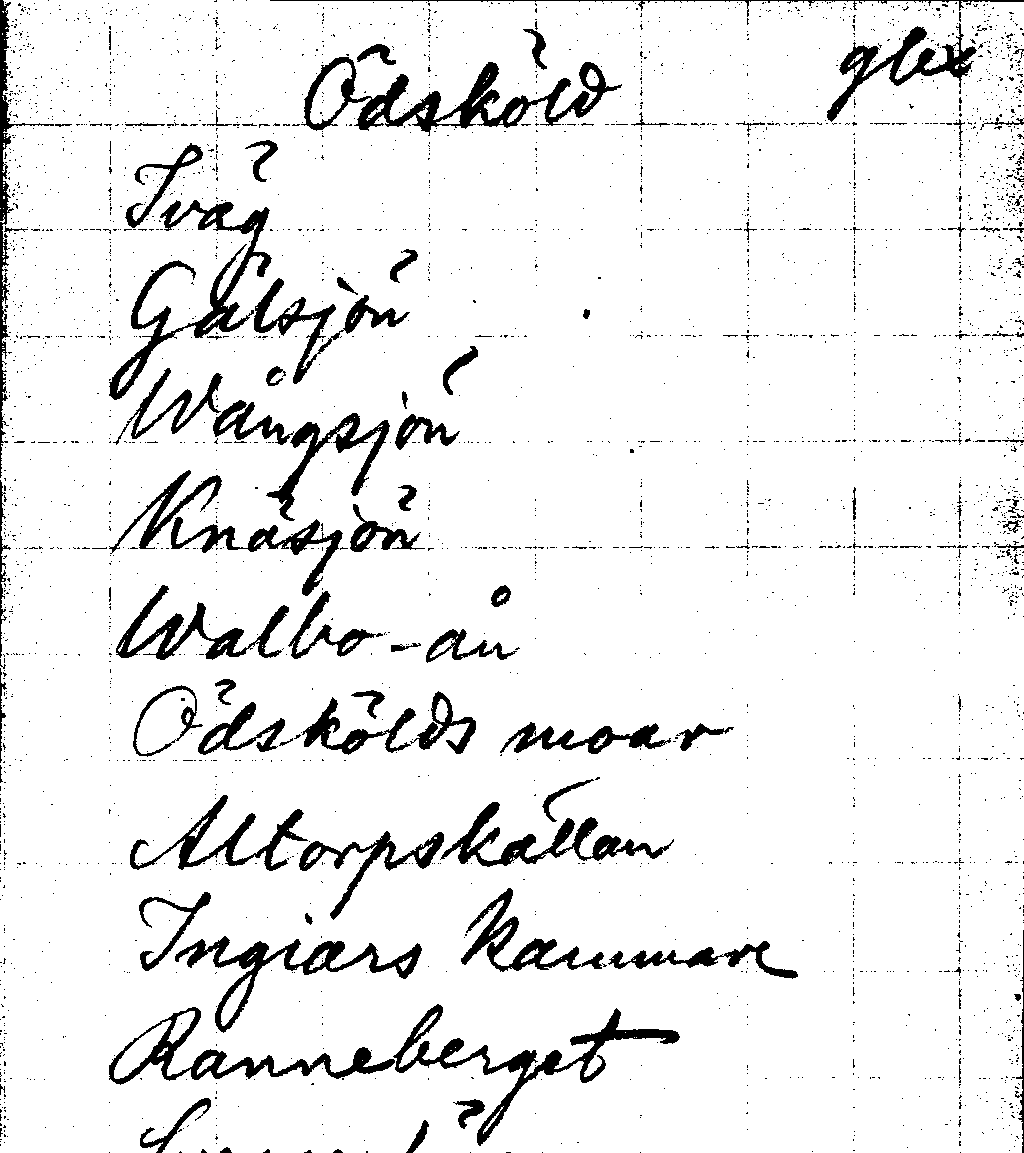 Ödsköld glex
Iväg
Gälsjön
Wångsjön
Knäsjön
Walbo-ån
Ödskölds moar
Altorpskällan
Ingiärs kammare
Ranneberget